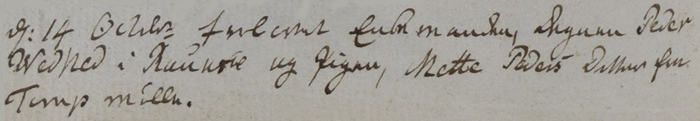 d: 14 Octobr Trolovet Enkemanden, Degnen Peder
Wedsted i Raunsøe og Pigen, Mette Peders Datter fra
Terp mølle.